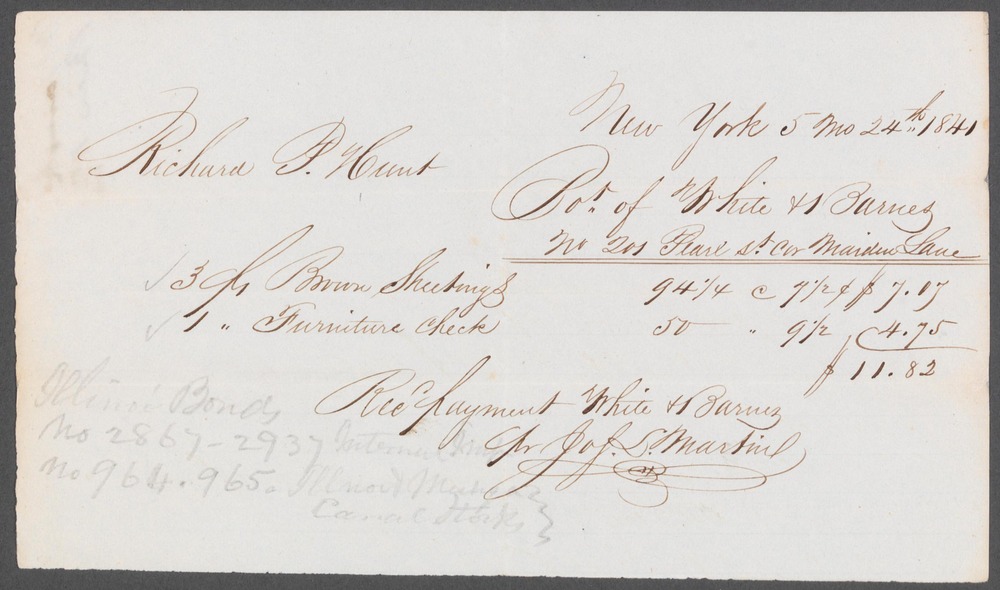 New York 5 Mo 24th 1841
Richard P. Hunt
Bot of White & Barnes
No 201 Pearl st. cor Maiden Lane
3 ps Brown Sheetings 94 1/4 c 7 1/2 ¢ $ 7.07
1 " Furniture Check 50 " 9 1/2 4.75
$ 11.82
Rec'd payment White & Barnes
pr Jos. S. Martin
Illinois Bonds
No 2867-2937 Internal Imp
No 964.965. Illinois
Canal Stock